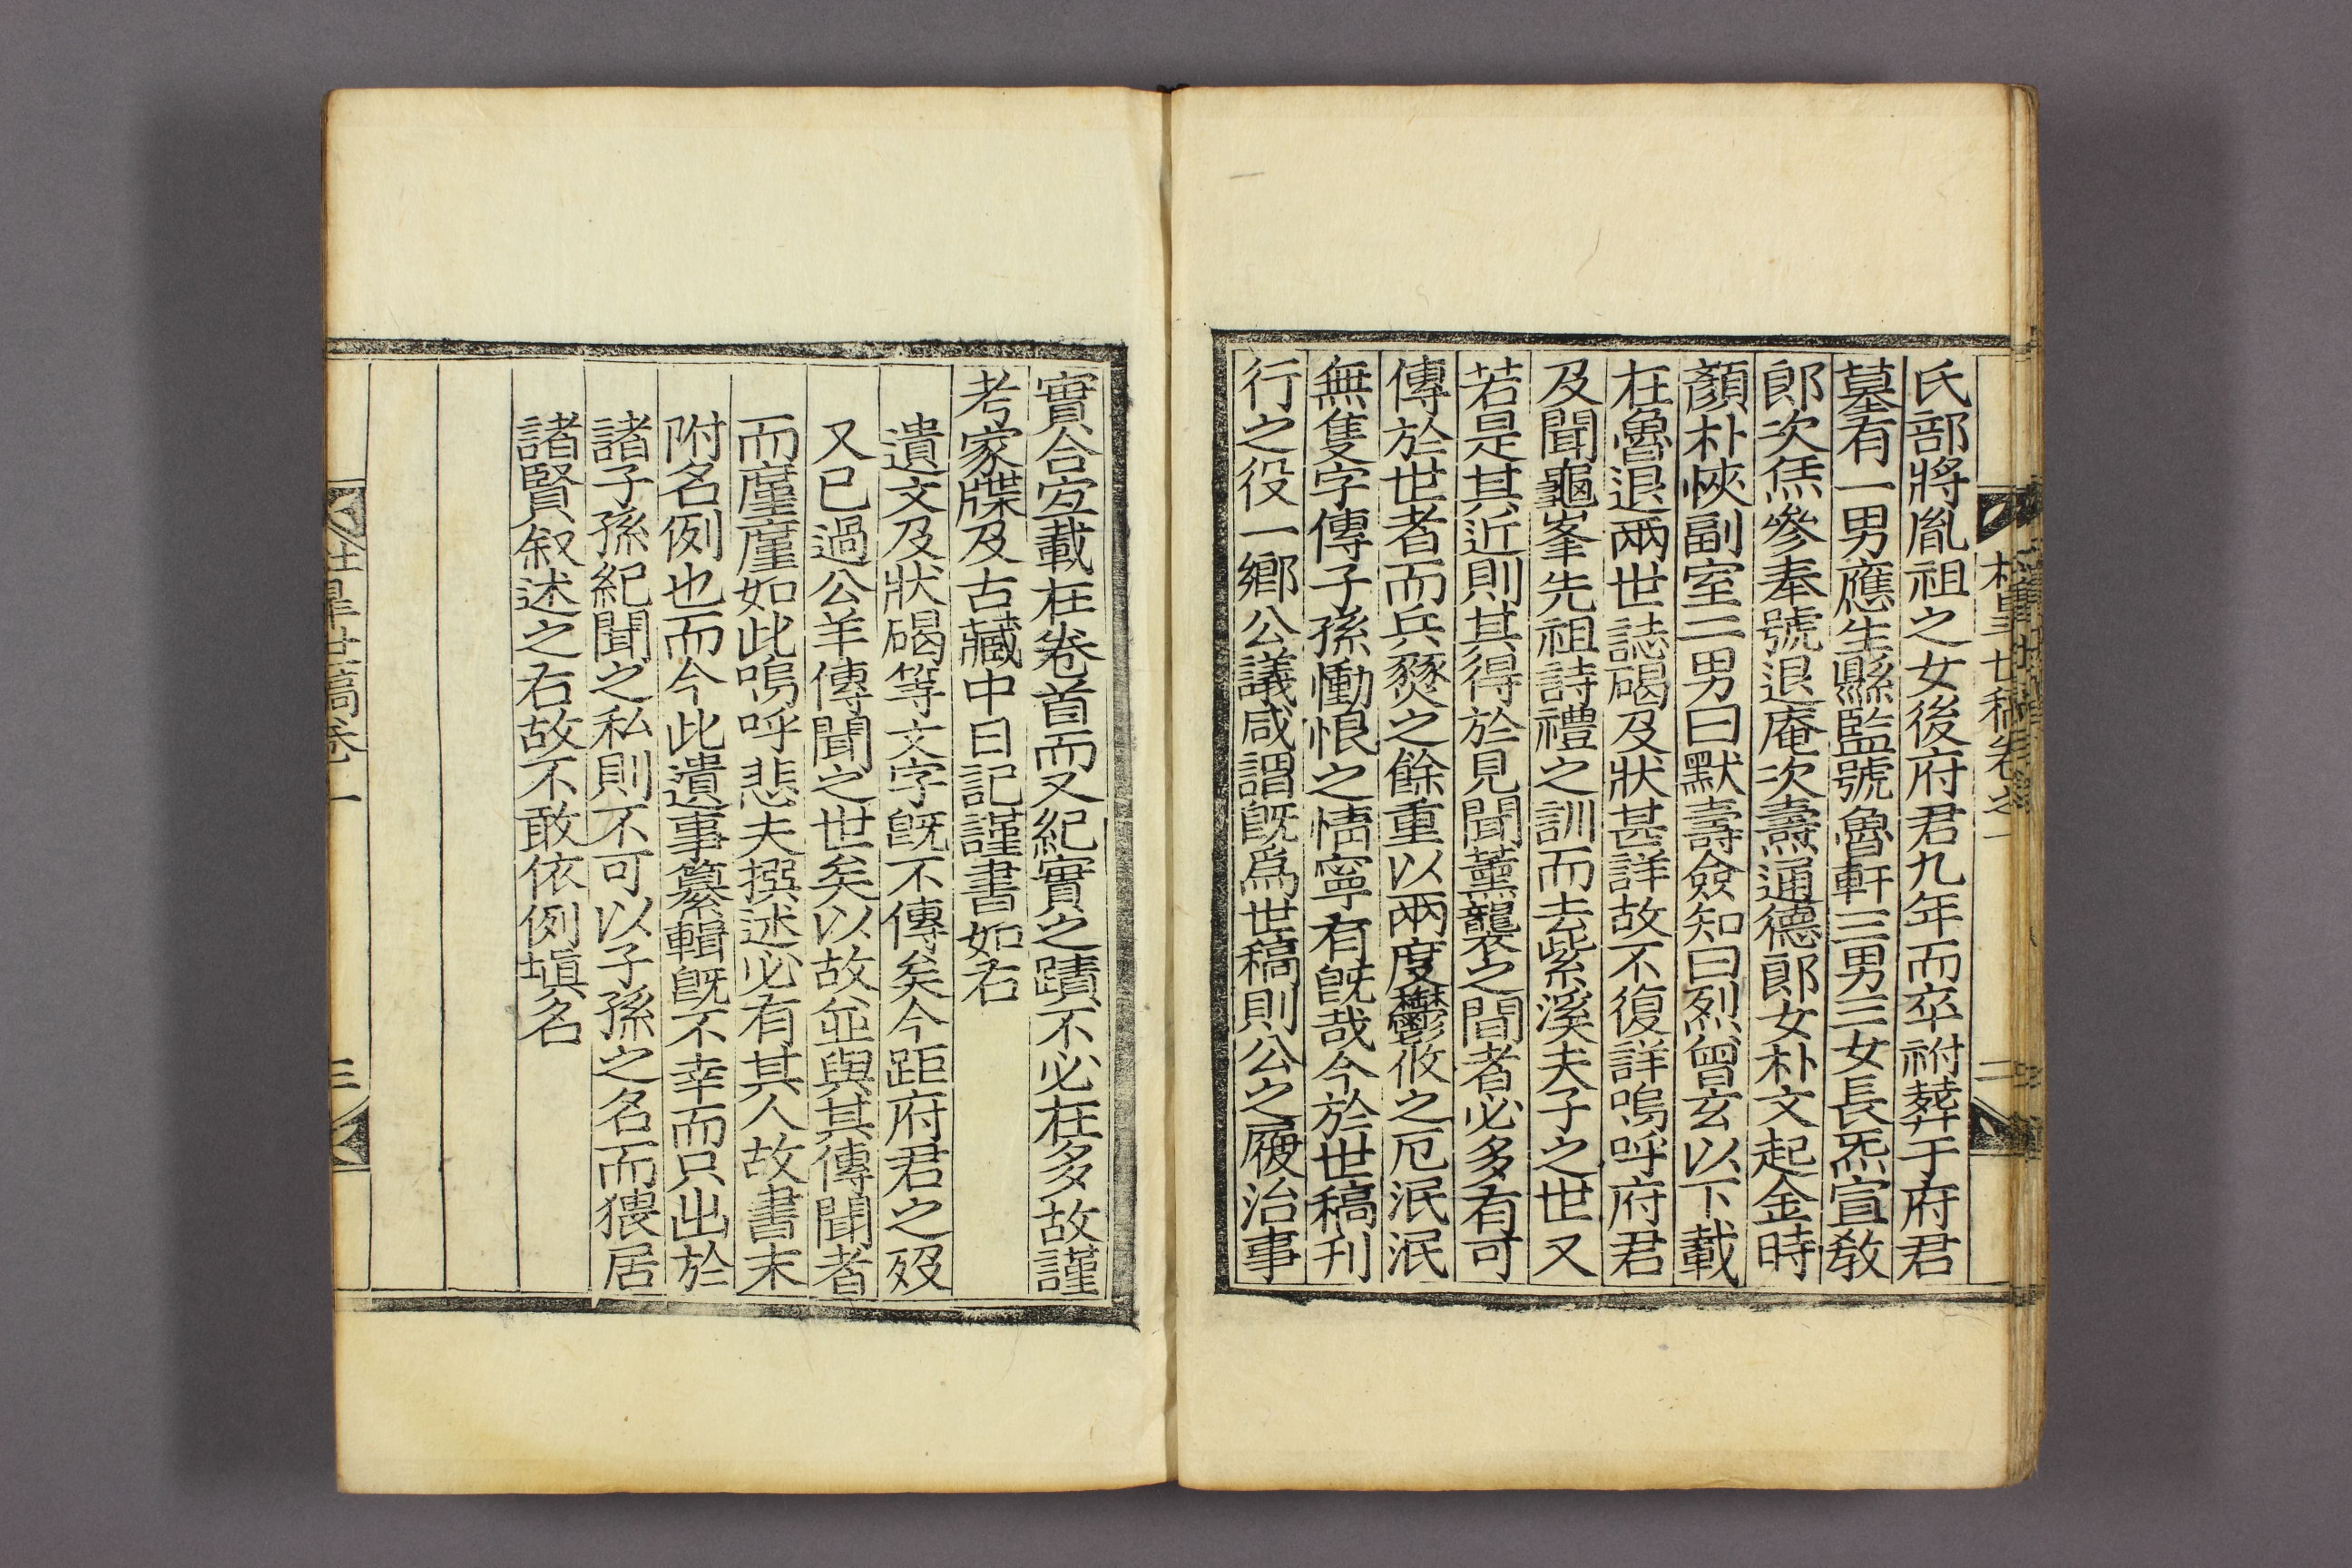 世稿卷之一
二
氏部將胤祖之女後府君九年而卒祔葬于府君
墓有一男應生縣監號魯軒三男三女長炁宣敎
郞次恁參奉號退庵次燾通德郞女朴文起金時
顏朴悏副室二男曰默壽僉知曰烈曾玄以下載
在魯退兩世誌碣及狀甚詳故不復詳嗚呼府君
及聞龜峯先祖詩禮之訓而去紫溪夫子之世又
若是其近則其得於見聞薰襲之間者必多有可
傳於世者而兵燹之餘重以兩度鬱攸之厄泯泯
無隻字傳子孫慟恨之情寧有旣哉今於世稿刊
行之役一鄕公議咸謂旣爲世稿則公之履治事
實合宜載在卷首而又紀實之蹟不必在多故謹
考家牒及古藏中日記謹書如右
遺文及狀碣等文字旣不傳矣今距府君之歿
又已過公羊傳聞之世矣以故並與其傳聞者
而廑廑如此嗚呼悲夫撰述必有其人故書末
附名例也而今此遺事纂輯旣不幸而只出於
諸子孫紀聞之私則不可以子孫之名而猥居
諸賢叙述之右故不敢依例塡名
世稿卷一
三